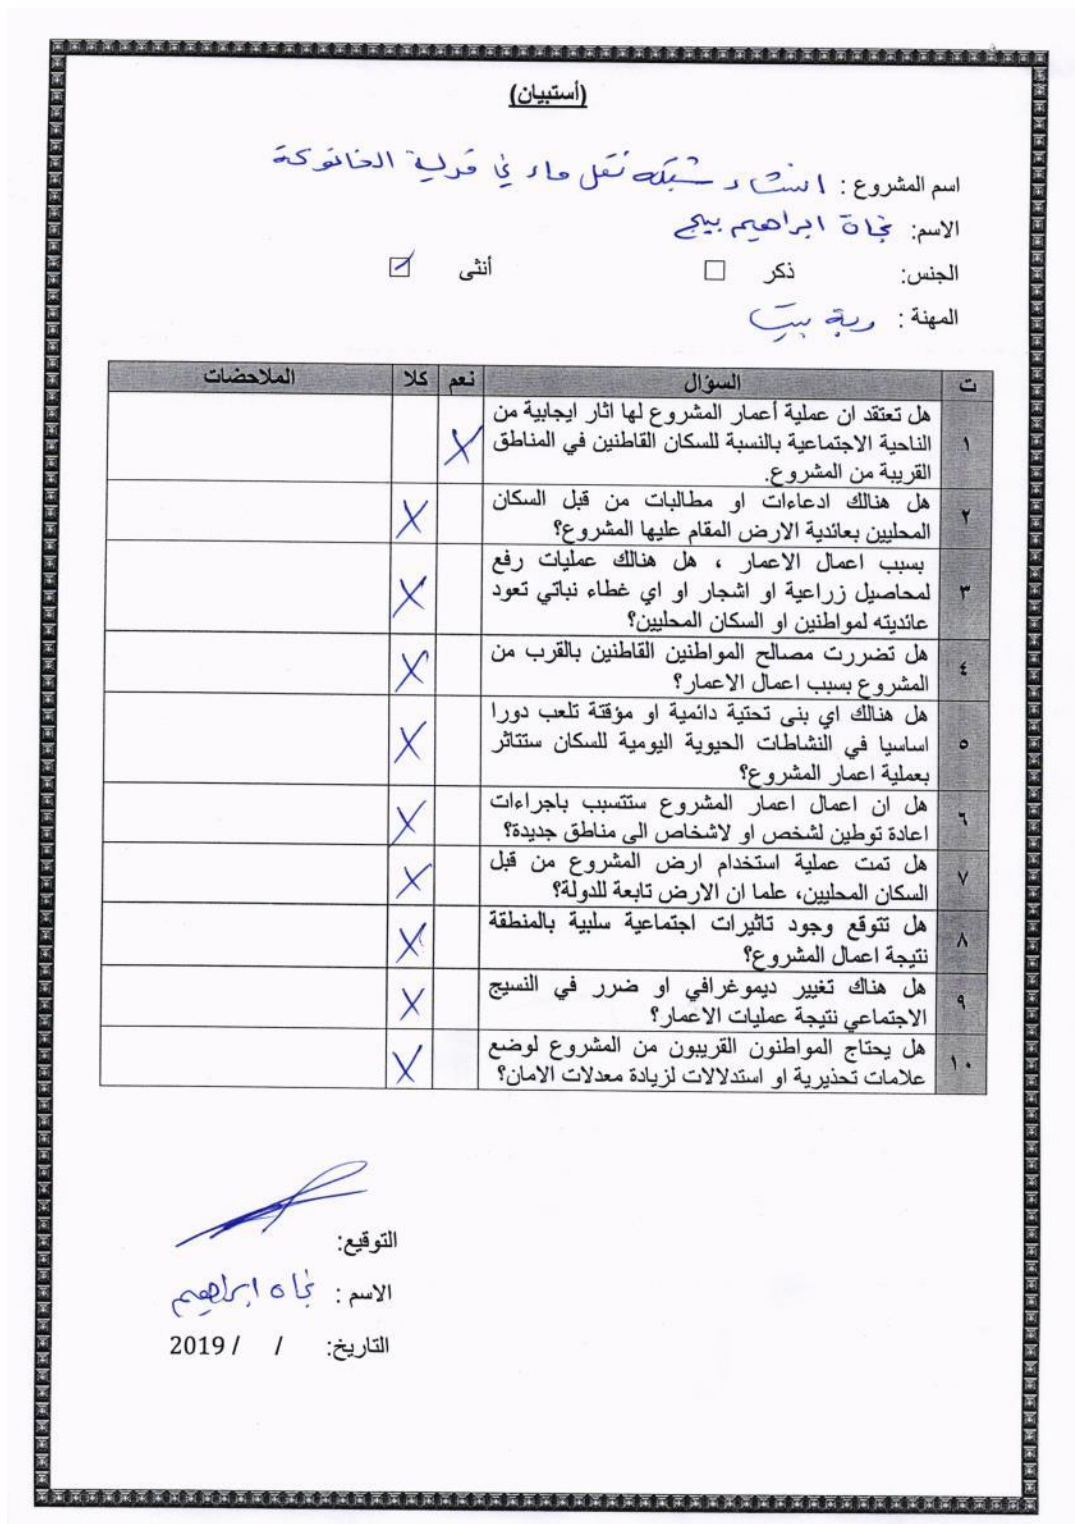 (أستبيان)
اسم المشروع : انشاء شبكة نقل ماء في قرية الخانوكة
الاسم: نجاة ابراهيم
الجنس: ذكر ☐ أنثى ☑
المهنة : ربة بيت
ت السؤال نعم كلا الملاحضات
١ هل تعتقد ان عملية أعمار المشروع لها اثار ايجابية من
الناحية الاجتماعية بالنسبة للسكان القاطنين في المناطق X
القريبة من المشروع.
٢ هل هنالك ادعاءات او مطالبات من قبل السكان
المحليين بعائدية الارض المقام عليها المشروع؟ X
٣ بسبب اعمال الاعمار ، هل هنالك عمليات رفع
لمحاصيل زراعية او اشجار او اي غطاء نباتي تعود X
عائديته لمواطنين او السكان المحليين؟
٤ هل تضررت مصالح المواطنين القاطنين بالقرب من
المشروع بسبب اعمال الاعمار؟ X
٥ هل هنالك اي بنى تحتية دائمية او مؤقتة تلعب دورا
اساسيا في النشاطات الحيوية اليومية للسكان ستتاثر X
بعملية اعمار المشروع؟
٦ هل ان اعمال اعمار المشروع ستتسبب باجراءات
اعادة توطين لشخص او لاشخاص الى مناطق جديدة؟ X
٧ هل تمت عملية استخدام ارض المشروع من قبل
السكان المحليين، علما ان الارض تابعة للدولة؟ X
٨ هل تتوقع وجود تاثيرات اجتماعية سلبية بالمنطقة
نتيجة اعمال المشروع؟ X
٩ هل هناك تغيير ديموغرافي او ضرر في النسيج
الاجتماعي نتيجة عمليات الاعمار؟ X
١٠ هل يحتاج المواطنون القريبون من المشروع لوضع
علامات تحذيرية او استدلالات لزيادة معدلات الامان؟ X
التوقيع:
الاسم : نجاه ابراهيم
التاريخ: / / 2019